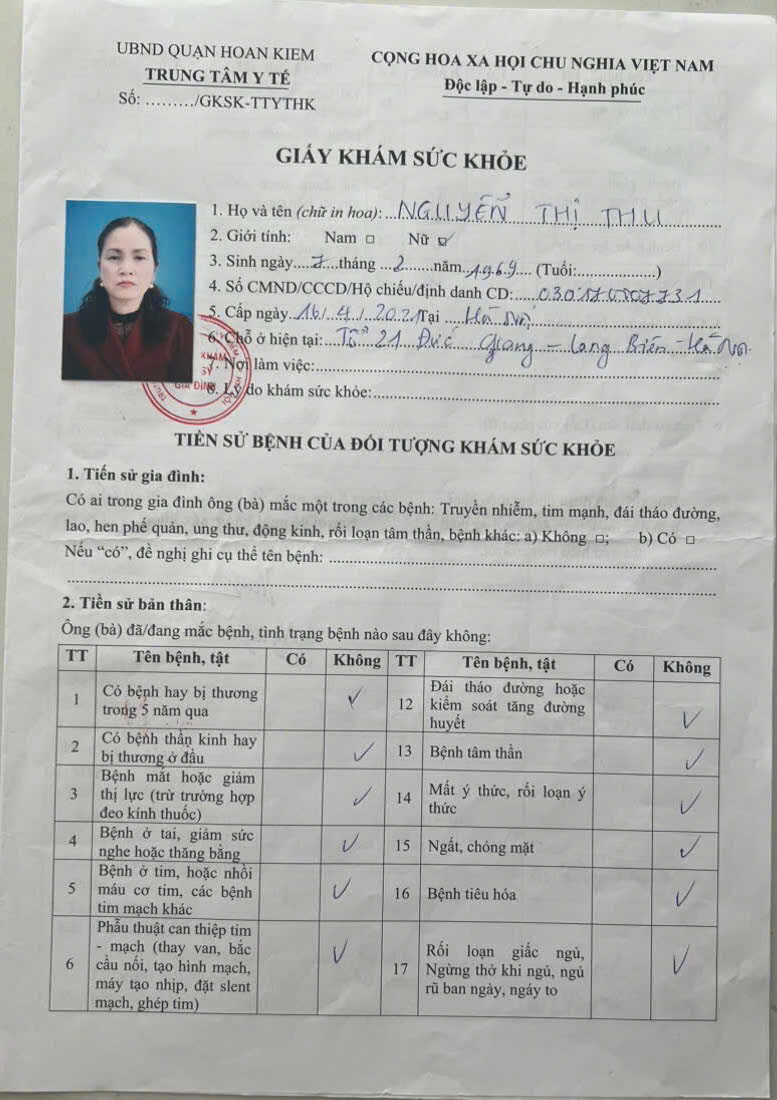 UBND QUẬN HOAN KIEM
TRUNG TÂM Y TẾ
Số: ........./GKSK-TTYTHK
CỌNG HOA XA HỌI CHU NGHIA VIỆT NAM
Độc lập - Tự do - Hạnh phúc
GIẤY KHÁM SỨC KHỎE
1. Họ và tên (chữ in hoa): NGUYỄN THỊ THU
2. Giới tính: Nam □ Nữ ☑
3. Sinh ngày 7 tháng 2 năm 1969 (Tuổi:..............)
4. Số CMND/CCCD/Hộ chiếu/định danh CD:
5. Cấp ngày 16/4/2021 Tại Hà Nội
6. Chỗ ở hiện tại: Tổ 21 Đức Giang - Long Biên - Hà Nội
7. Nơi làm việc:
8. Lý do khám sức khỏe:
TIỀN SỬ BỆNH CỦA ĐỐI TƯỢNG KHÁM SỨC KHỎE
1. Tiền sử gia đình:
Có ai trong gia đình ông (bà) mắc một trong các bệnh: Truyền nhiễm, tim mạnh, đái tháo đường,
lao, hen phế quản, ung thư, động kinh, rối loạn tâm thần, bệnh khác: a) Không □; b) Có □
Nếu “có”, đề nghị ghi cụ thể tên bệnh:
2. Tiền sử bản thân:
Ông (bà) đã/đang mắc bệnh, tình trạng bệnh nào sau đây không:
TT Tên bệnh, tật Có Không TT Tên bệnh, tật Có Không
1 Có bệnh hay bị thương
trong 5 năm qua ✓
12 Đái tháo đường hoặc
kiểm soát tăng đường
huyết ✓
2 Có bệnh thần kinh hay
bị thương ở đầu ✓
13 Bệnh tâm thần ✓
3 Bệnh mắt hoặc giảm
thị lực (trừ trường hợp
đeo kính thuốc) ✓
14 Mất ý thức, rối loạn ý
thức ✓
4 Bệnh ở tai, giảm sức
nghe hoặc thăng bằng ✓
15 Ngất, chóng mặt ✓
5 Bệnh ở tim, hoặc nhồi
máu cơ tim, các bệnh
tim mạch khác ✓
16 Bệnh tiêu hóa ✓
6 Phẫu thuật can thiệp tim
- mạch (thay van, bắc
cầu nối, tạo hình mạch,
máy tạo nhịp, đặt slent
mạch, ghép tim) ✓
17 Rối loạn giấc ngủ,
Ngừng thở khi ngủ, ngủ
rũ ban ngày, ngáy to ✓